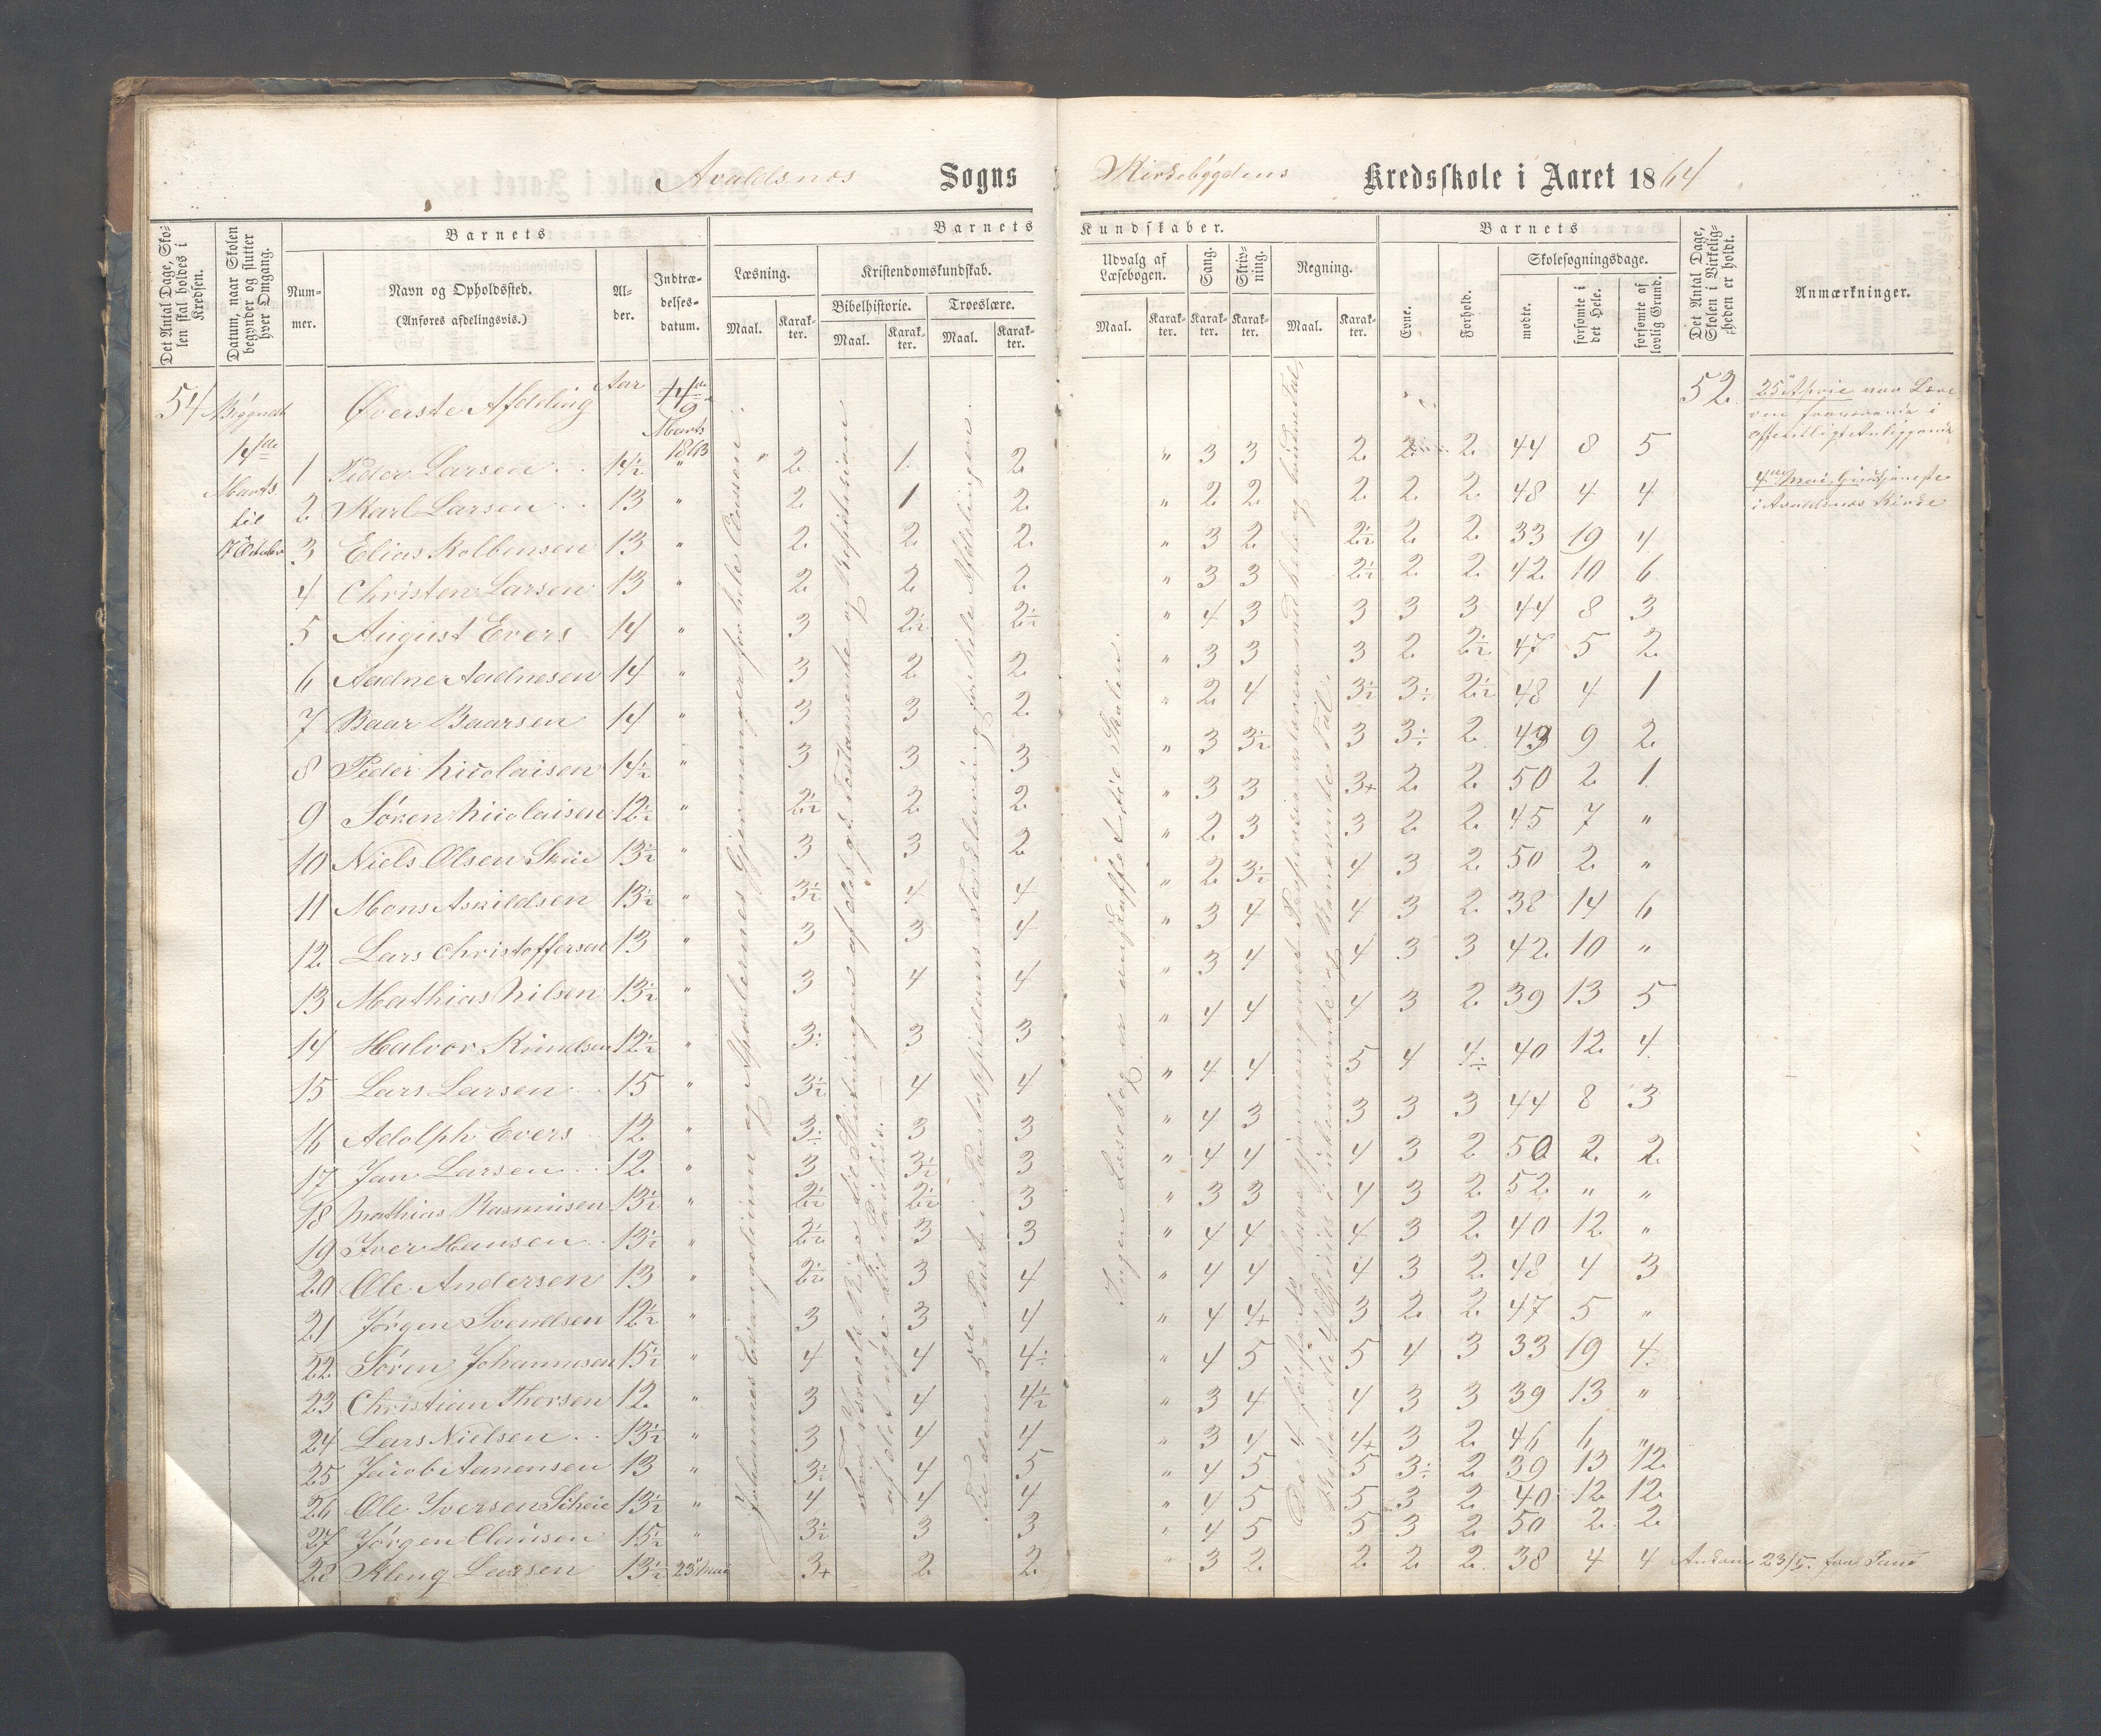 Avaldsnes Sogns Kirkebygdens Kredsskole i Aaret 1864
Det Antal Dage, Skolen skal holdes i Kredsen.
Datum, naar Skolen begynder og slutter hver Omgang.
Barnets
Nummer.
Navn og Opholdssted.
(Anføres afdelingsvis.)
Alder.
Indtrædelsesdatum.
Barnets Kundskaber.
Læsning.
Maal. Karakter.
Kristendomskundskab.
Bibelhistorie. Troeslære.
Maal. Karakter. Maal. Karakter.
Udvalg af Læsebogen.
Maal. Karakter.
Sang. Karakter.
Skrivning. Karakter.
Regning.
Maal. Karakter.
Barnets
Evne.
Forhold.
Skolesøgningsdage.
mødte.
forsømte i det Hele.
forsømte af lovlig Grund.
Det Antal Dage, Skolen i Virkeligheden er holdt.
Anmærkninger.
54 Begyndt 14de Marts til 7 October
Øverste Afdeling Aar 14de Marts 1863 52
1 Peder Larsen 14½ " " 2 1 2 " 3 3 2 2 2 44 8 5
2 Karl Larsen 13 " 2 1 2 " 2 2 2 2 2 48 4 4
3 Elias Kolbensen 13 " 2 2 2 " 3 2 2½ 2 2 33 19 4
4 Christen Larsen 13 " 2 2 2 " 3 3 2½ 2 2 42 10 6
5 August Evers 14 " 3 2½ 2½ " 4 3 3 3 3 44 8 3
6 Aadne Aadnesen 14 " 3 2 2 " 3 3 3 2 2½ 47 5 2
7 Baar Baarsen 14 " 3 3 2 " 2 4 3½ 3÷ 2½ 48 4 1
8 Peder Nicolaisen 14½ " 3 3 3 " 3 3½ 3 3÷ 2 49 9 2
9 Søren Nicolaisen 12½ " 2½ 2 2 " 3 3 3+ 2 2 50 2 1
10 Niels Olsen Skeie 13½ " 3 3 2 " 2 3 3 2 2 45 7 "
11 Mons Askildsen 13½ " 3½ 4 4 " 2 3½ 4 3 2 50 2 "
12 Lars Christoffersen 13 " 3 3 4 " 3 4 4 3 2 38 14 6
13 Mathias Nilsen 13½ " 3 4 4 " 3 4 4 3 3 42 10 "
14 Halvor Knudsen 12½ " 3÷ 3 3 " 4 4 4 3 2 39 13 5
15 Lars Larsen 15 " 3½ 4 4 " 4 4 5 4 4÷ 40 12 4
16 Adolph Evers 12 " 3÷ 3 3 " 4 3 3 3 3 44 8 3
17 Jan Larsen 12 " 3 3½ 3 " 4 4 4 3 2 50 2 2
18 Mathias Rasmusen 13½ " 2½ 2½ 3 " 3 3 4 3 2 52 " "
19 Iver Hansen 13½ " 2½ 3 3 " 4 4 4 3 2 40 12 "
20 Ole Andersen 13 " 2½ 3 4 " 4 4 4 3 2 48 4 3
21 Jørgen Svendsen 12½ " 3 3 4 " 4 4+ 3 2 2 47 5 "
22 Søren Johannesen 15½ " 4 4 4÷ " 4 5 5 4 3 33 19 4
23 Christian Thorsen 12 " 3 4 4½ " 3 4 4 3 3 39 13 "
24 Lars Nielsen 13½ " 3 4 4 " 3 4 4+ 3 2 46 6 "
25 Jacob Aanensen 13 " 3½ 4 5 " 4 5 5 3÷ 2 39 13 12
26 Ole Iversen Scheie 13½ " 4 4 4 " 4 5 5 3 2 40 12 12
27 Jørgen Clausen 15½ " 3½ 3 3 " 4 5 5 3 2 50 2 2
28 Kleng Larsen 13½ 23 Mai 3+ 2 2 " 3 2 2 2 2 38 4 4 Ankom 23/5 fra
Johannes Evangelium og Apostlernes Gjerninger for hele Classen
Fra Israels Rige til Slutningen af det gl. Testamente og Repetition
af det nye til Paulus.
Til den 5te Part i Pontoppidans Forklaring for hele Afdelingen.
Ingen Læsebog er anskaffet til Skolen.
De 4 første No have gjennemgaaet med hele og brudne Tal,
Resten de 4 Species i ubenævnte og benævnte Tal.
25 April var Læreren fraværende i offentligt Anliggende
4 Mai Gudstjeneste i Avaldsnes Kirke